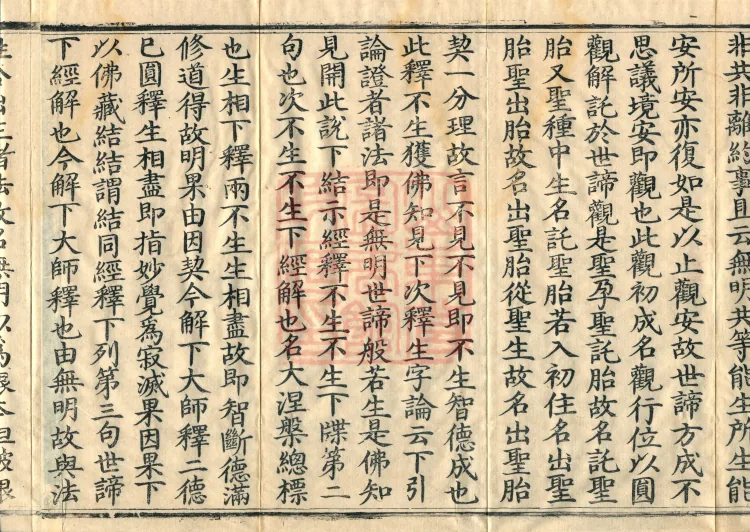 非共非離終事且云無明共等能生所生能
安所安亦復如是以止觀安故世諦方成不
思議境安即觀也此觀初成名觀行位以圓
觀解託於世諦觀是聖孕聖託胎故名託聖
胎又聖種中生名託聖胎若入初住名出聖
胎聖出胎故名出聖胎從聖生故名出聖胎
契一分理故言不見不見即不生智德成也
此釋不生獲佛知見下次釋生字論云下引
論證者諸法即是無明世諦般若生是佛知
見開此說下結示經釋不生不生下牒第二
句也次不生不生下經解也名大涅槃總標
也生相下釋兩不生生相盡故即智斷德滿
修道得故明果由因契今解下大師釋二德
已圓釋生相盡即指妙覺為寂滅果因果下
以佛藏結結謂結同經釋下列第三句世諦
下經解也今解下大師釋也由無明故與法